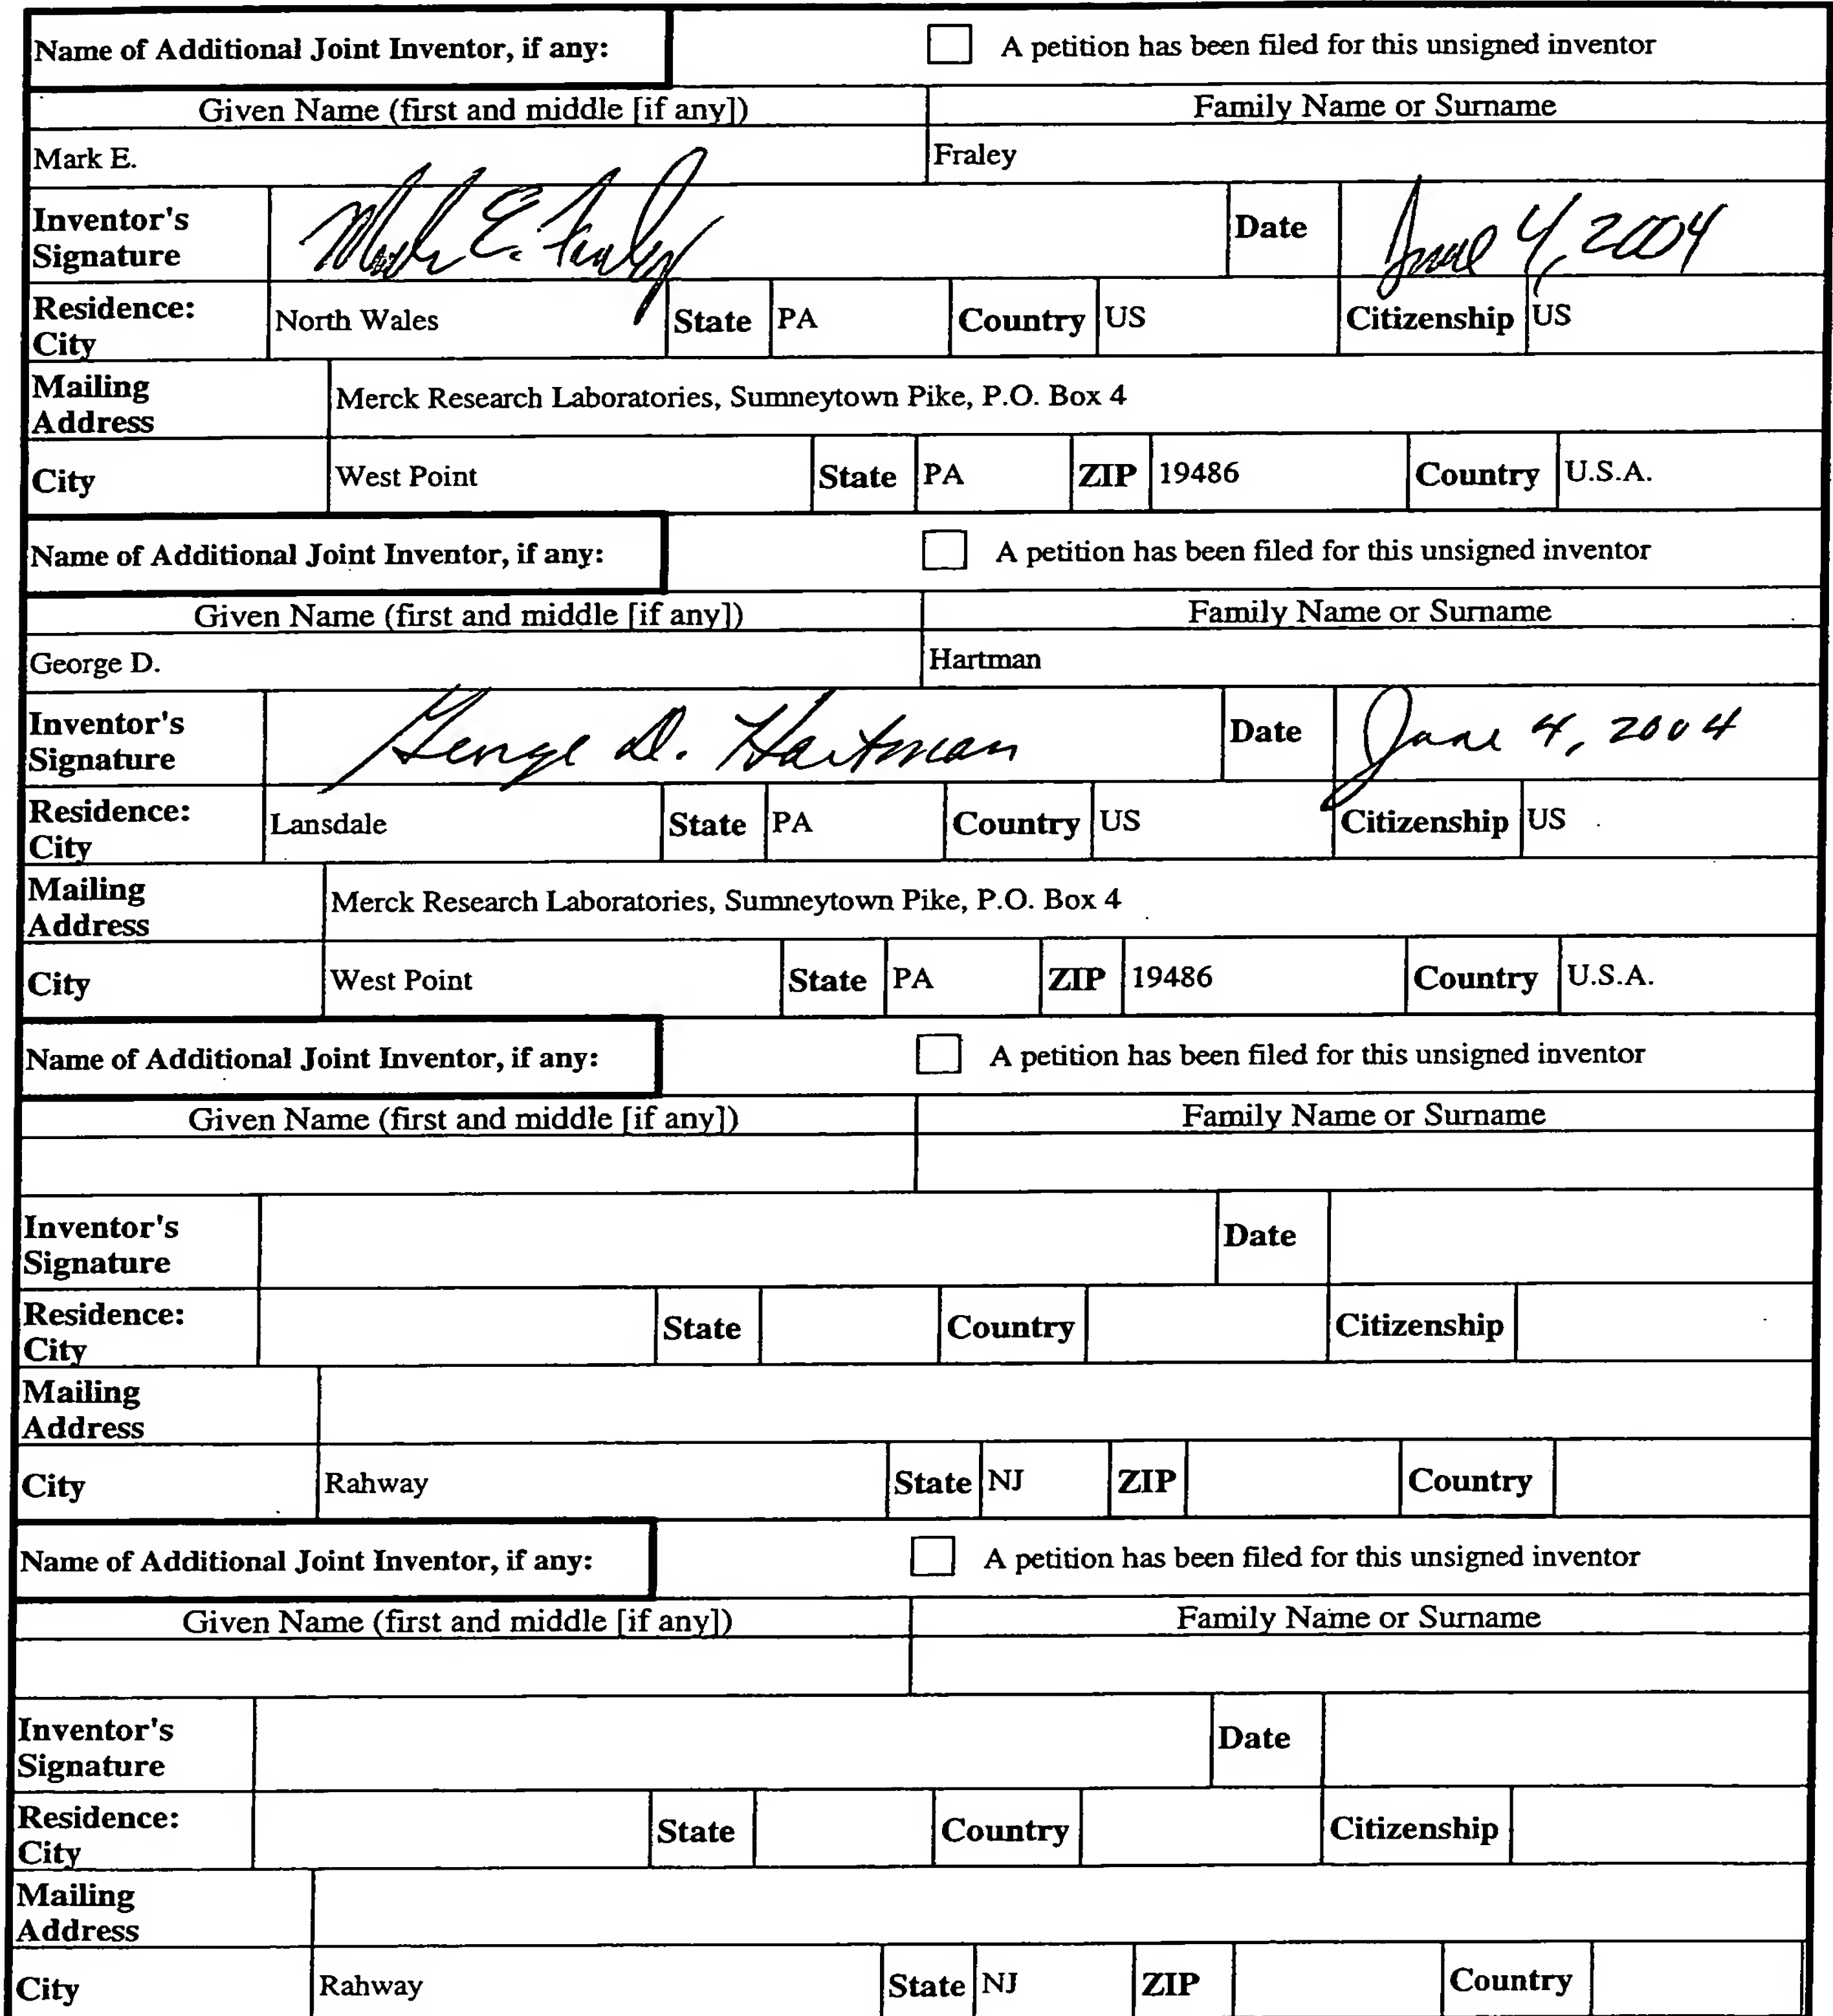 Name of Additional Joint Inventor, if any: A petition has been filed for this unsigned inventor
Given Name (first and middle [if any]) Family Name or Surname
Mark E. Fraley
Inventor's Signature Mark E. Fraley Date June 4, 2004
Residence: City North Wales State PA Country US Citizenship US
Mailing Address Merck Research Laboratories, Sumneytown Pike, P.O. Box 4
City West Point State PA ZIP 19486 Country U.S.A.
Name of Additional Joint Inventor, if any: A petition has been filed for this unsigned inventor
Given Name (first and middle [if any]) Family Name or Surname
George D. Hartman
Inventor's Signature George D. Hartman Date June 4, 2004
Residence: City Lansdale State PA Country US Citizenship US
Mailing Address Merck Research Laboratories, Sumneytown Pike, P.O. Box 4
City West Point State PA ZIP 19486 Country U.S.A.
Name of Additional Joint Inventor, if any: A petition has been filed for this unsigned inventor
Given Name (first and middle [if any]) Family Name or Surname
Inventor's Signature Date
Residence: City State Country Citizenship
Mailing Address
City Rahway State NJ ZIP Country
Name of Additional Joint Inventor, if any: A petition has been filed for this unsigned inventor
Given Name (first and middle [if any]) Family Name or Surname
Inventor's Signature Date
Residence: City State Country Citizenship
Mailing Address
City Rahway State NJ ZIP Country